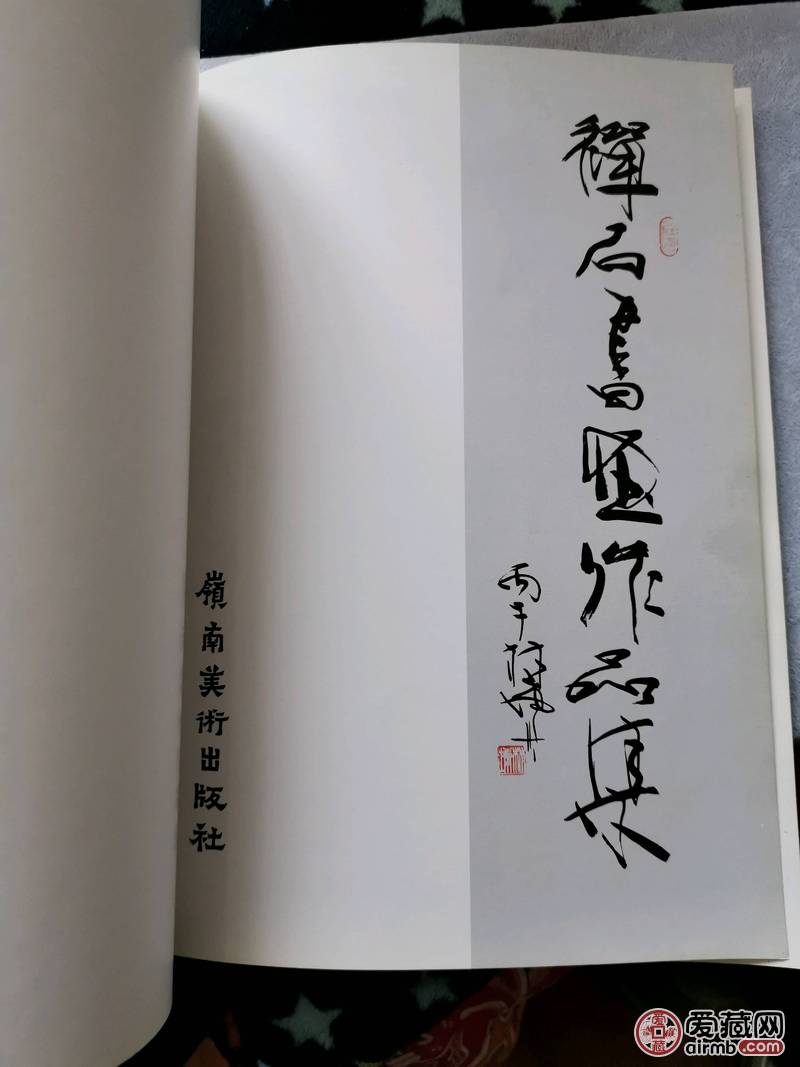 禅石書畫作品集
丙子
嶺南美術出版社
爱藏网
airmb.com